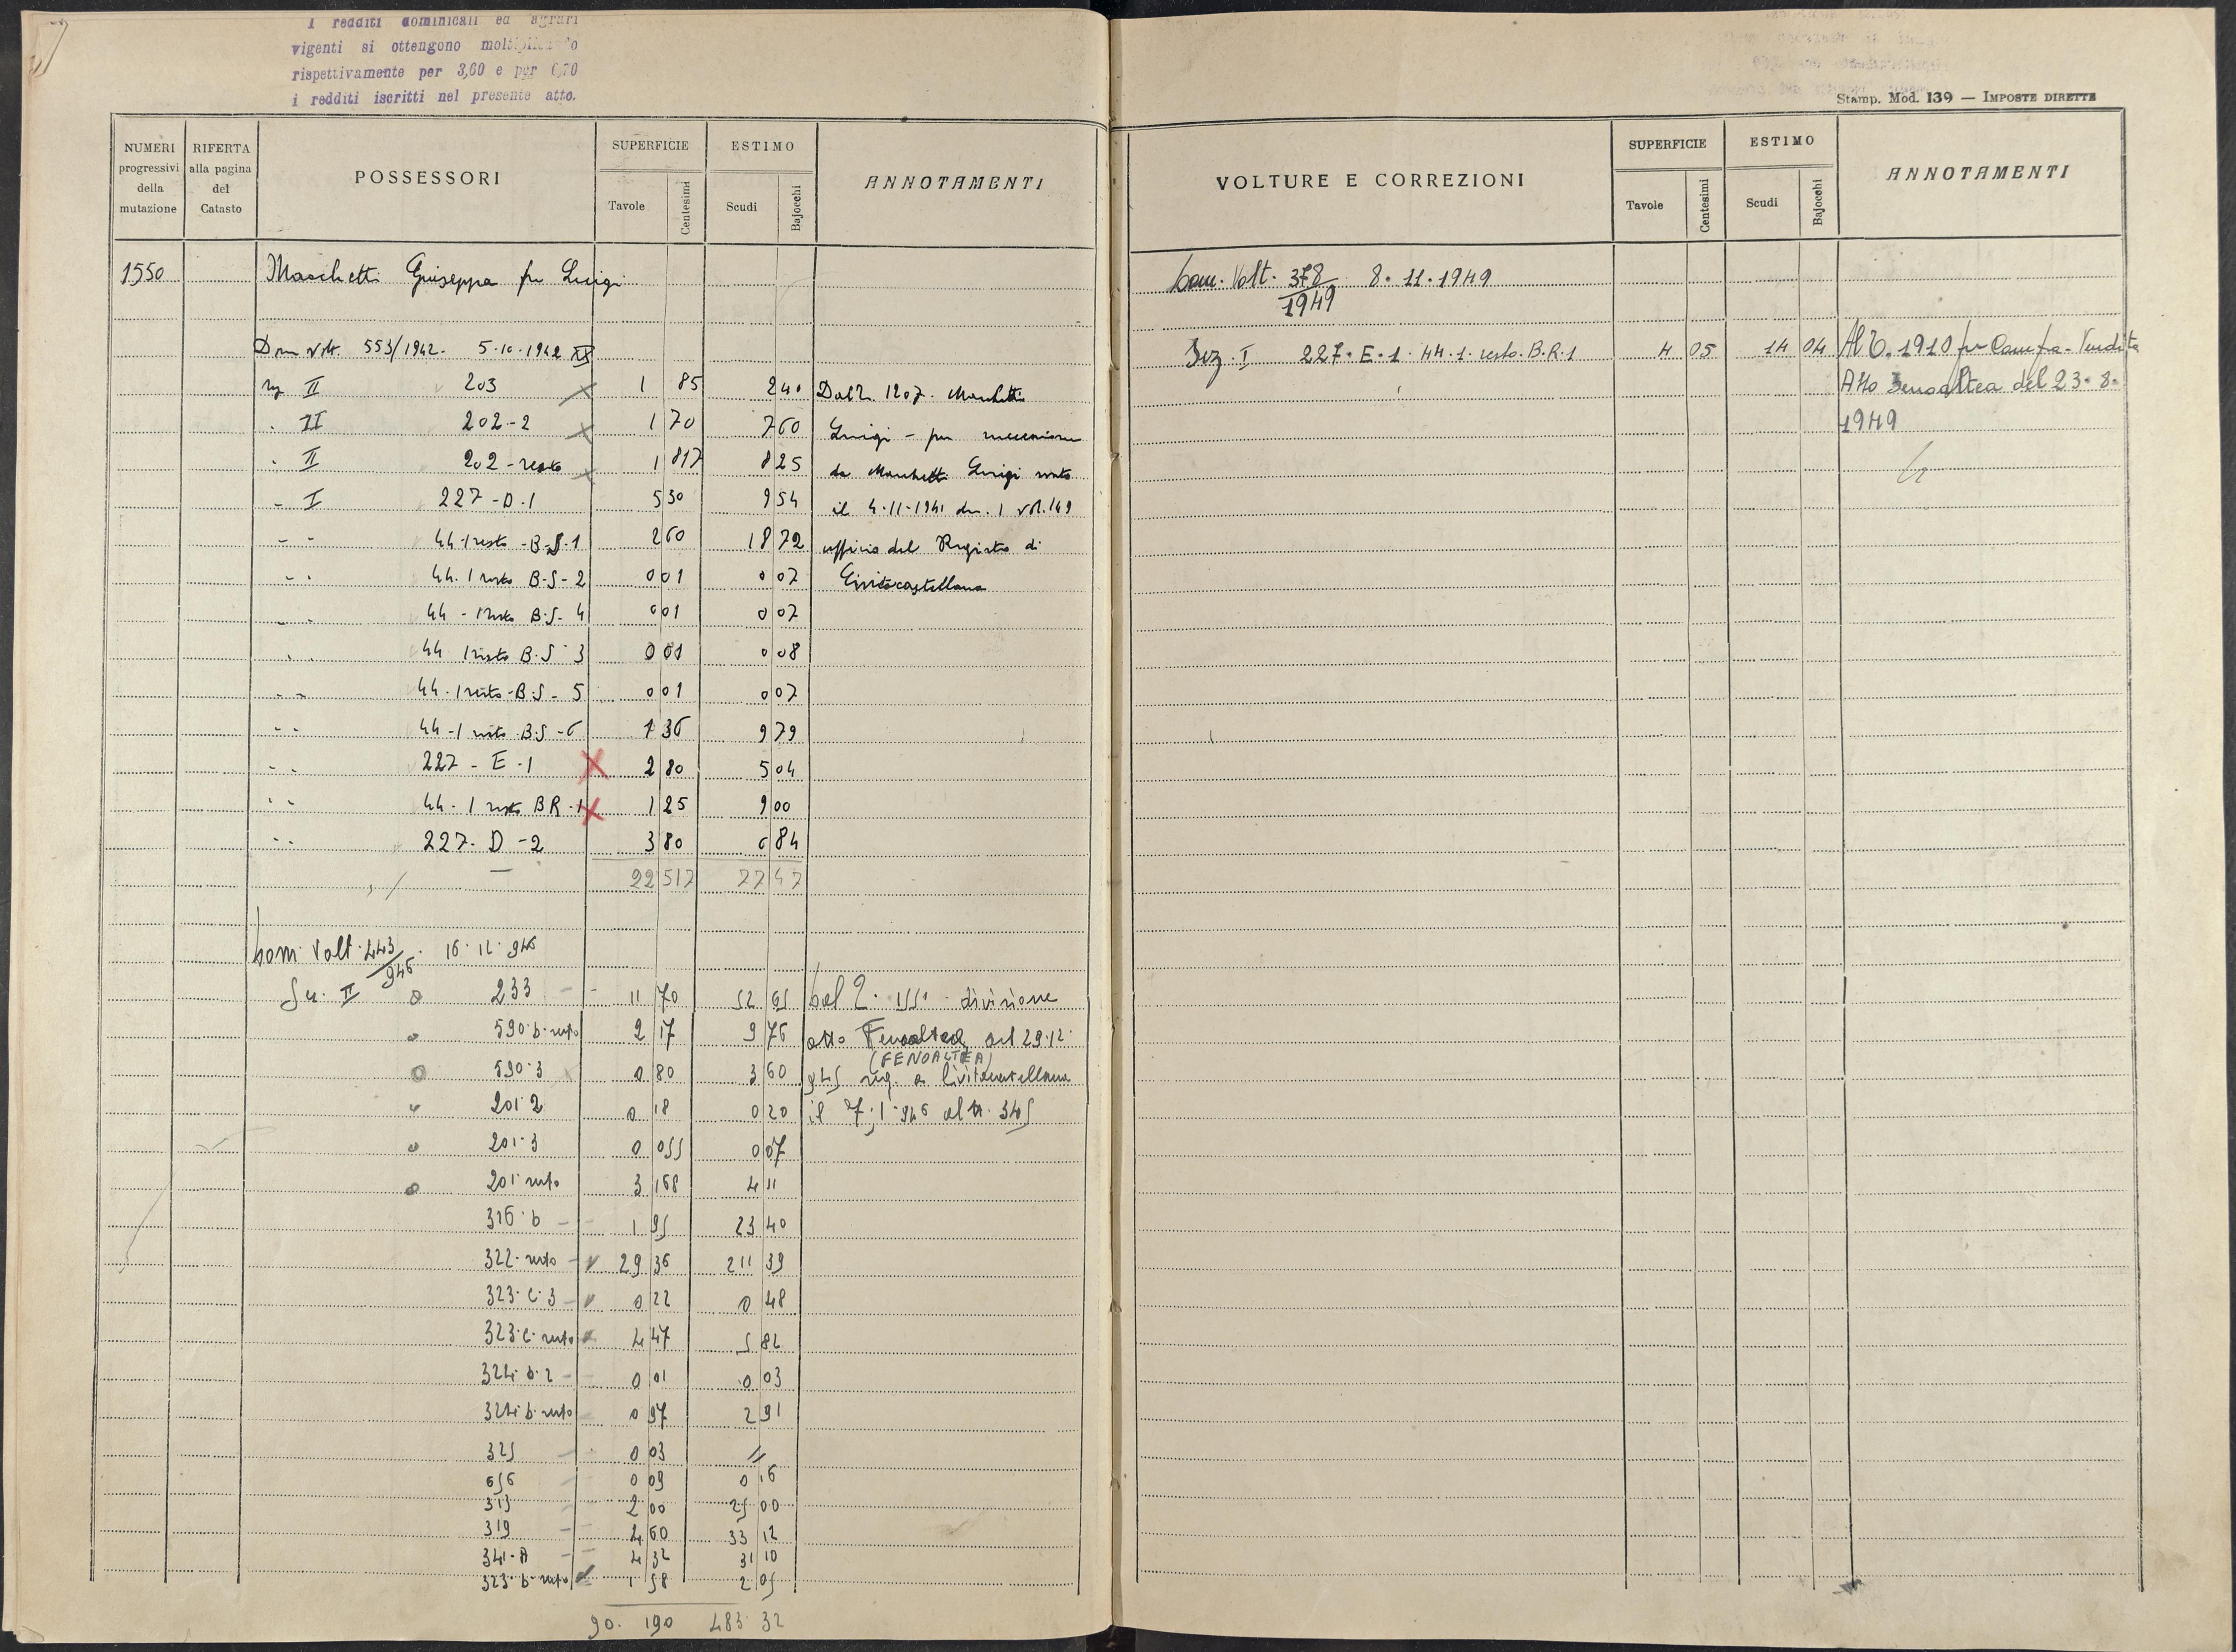 I redditi dominicali ed agrari
vigenti si ottengono moltiplicando
rispettivamente per 3,60 e per 6,70
i redditi iscritti nel presente atto.
NUMERI progressivi della mutazione
RIFERTA alla pagina del Catasto
POSSESSORI
SUPERFICIE
Tavole Centesimi
ESTIMO
Scudi Bajocchi
ANNOTAMENTI
1550 Maschetti Giuseppa fu Luigi
Dom Volt. 553/1942. 5-10-1942 XX
II 203 1 85 2 40 Dal 1207. Maschetti
. II 202-2 1 70 7 60 Luigi - per successione
. II 202-resto 1 817 8 25 da Maschetti Luigi
- I 227-D.1 5 30 9 54 il 4-11-1941 den. 1 vol. 149
- - 44-1 resto-B-S-1 2 60 18 72 ufficio del Registro di
- - 44. 1 resto B-S-2 0 01 0 07 Civitacastellana
- - 44-1 resto B.S-4 0 01 0 07
- - 44 1 resto B.S-3 0 01 0 08
- - 44-1 resto-B.S-5 0 01 0 07
- - 44-1 resto B.S-6 1 36 9 79
- - 227-E-1 X 2 80 5 04
- - 44-1 resto BR-1 X 1 25 9 00
- - 227-D-2 3 80 6 84
22 517 77 47
Dom Volt. 443/946. 16.12.946
II 233 11 70 52 65 Dal 1551 divisione
590.b.resto 2 17 9 76 atto Fenoaltea del 29.12.
(FENOALTEA)
590.3 0 80 3 60 945 reg. a Civitacastellana
201.2 0 18 0 20 il 7.1.946 al n. 345
201.3 0 055 0 07
201 resto 3 168 4 11
316.b 1 95 23 40
322.resto 29 36 211 39
323.C.3 0 22 0 48
323.C.resto 4 47 5 82
324.b.2 0 01 0 03
324.b.resto 0 97 2 91
325 0 03 //
656 0 09 0 16
313 2 00 25 00
319 2 60 33 12
341-A 4 32 31 10
323.b.resto 1 58 2 05
90. 190 483 32
Stamp. Mod. 139 — IMPOSTE DIRETTE
VOLTURE E CORREZIONI
SUPERFICIE
Tavole Centesimi
ESTIMO
Scudi Bajocchi
ANNOTAMENTI
Dom. Volt. 378/1949 8.11.1949
Sez. I 227.E.1. 44.1.resto.B.R.1 4 05 14 04 Al 1910 per Compra-Vendita
Atto Fenoaltea del 23.8.
1949